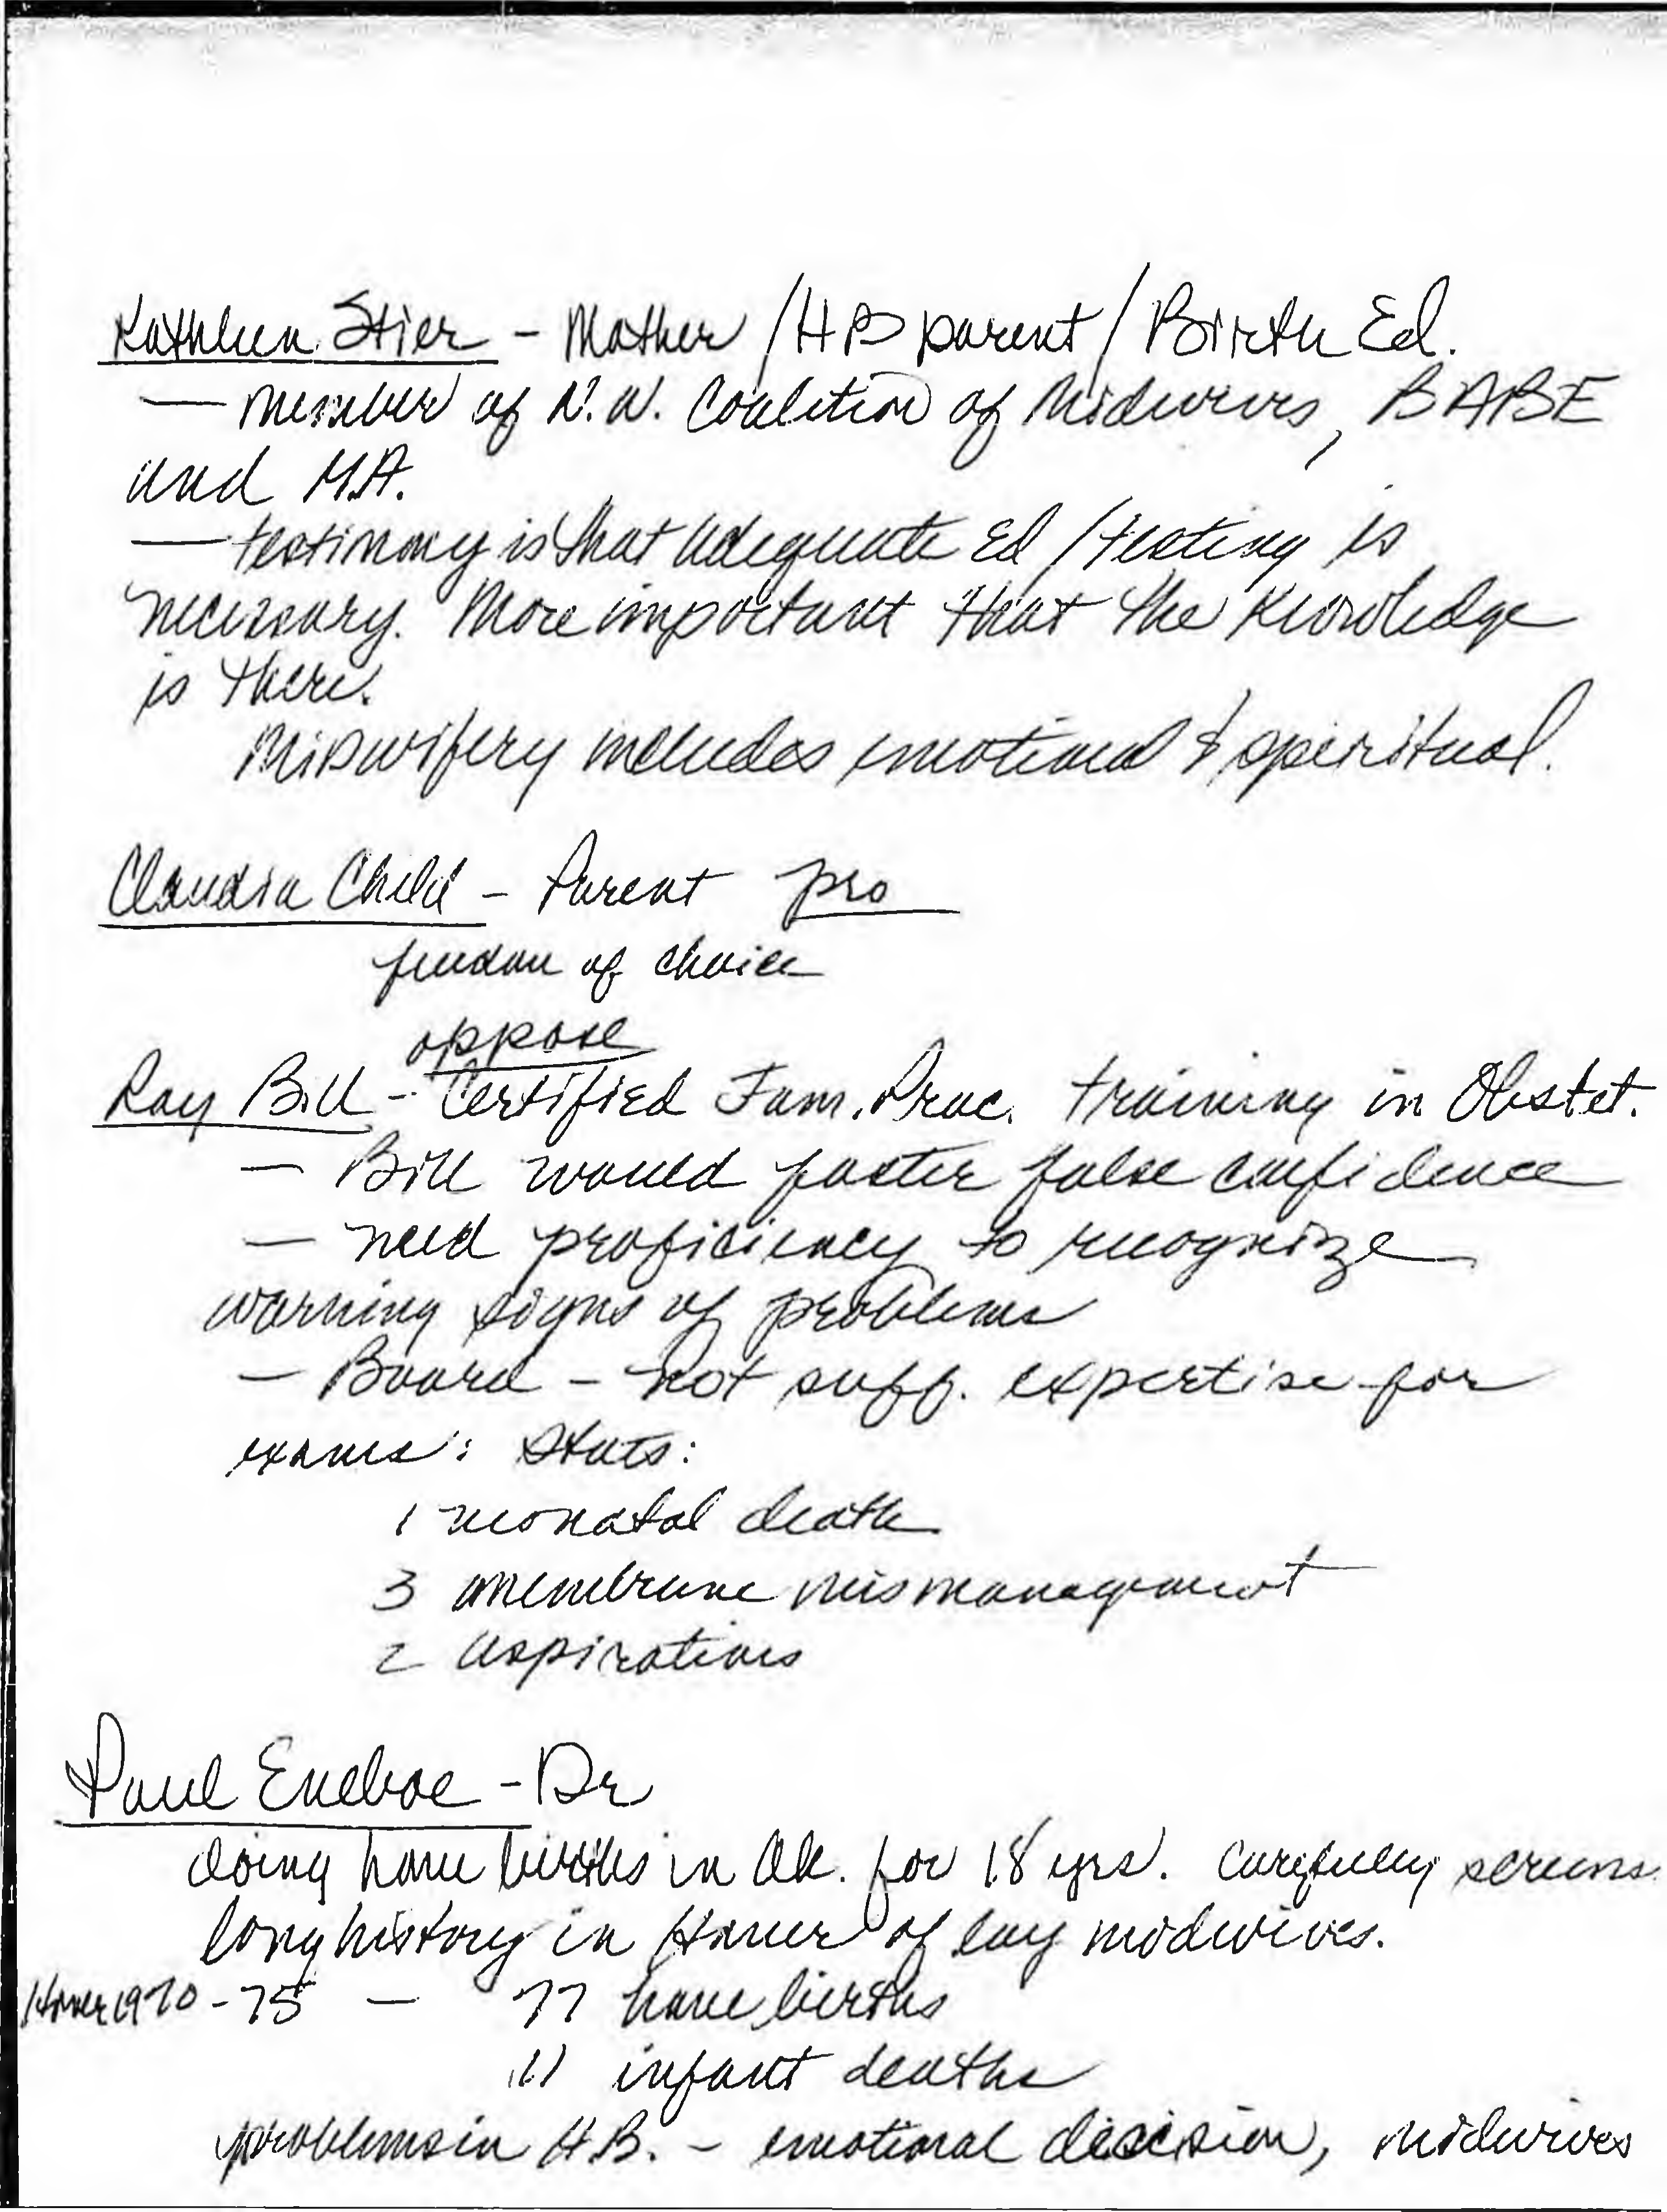 Kathleen Stier - Mother / HB parent / Birth Ed.
— member of N.W. Coalition of Midwives, BABE
and M.A.
— testimony is that adequate Ed / testing is
necessary. More important that the knowledge
is there.
Midwifery includes emotional & spiritual.
Claudia Child - Parent pro
freedom of choice
oppose
Ray Bill - Certified Fam. Prac. training in Obstet.
— Bill would foster false confidence
— need proficiency to recognize
warning signs of problems
— Board - not suff. expertise for
exams: Stats:
1 neonatal death
3 membrane mismanagement
2 aspirations
Paul Eneboe - Dr
doing home births in Ak. for 18 yrs. Carefully screens
long history in Homer of lay midwives.
Homer 1970 - 75 — 77 home births
11 infant deaths
problems in H.B. - emotional decision, midwives